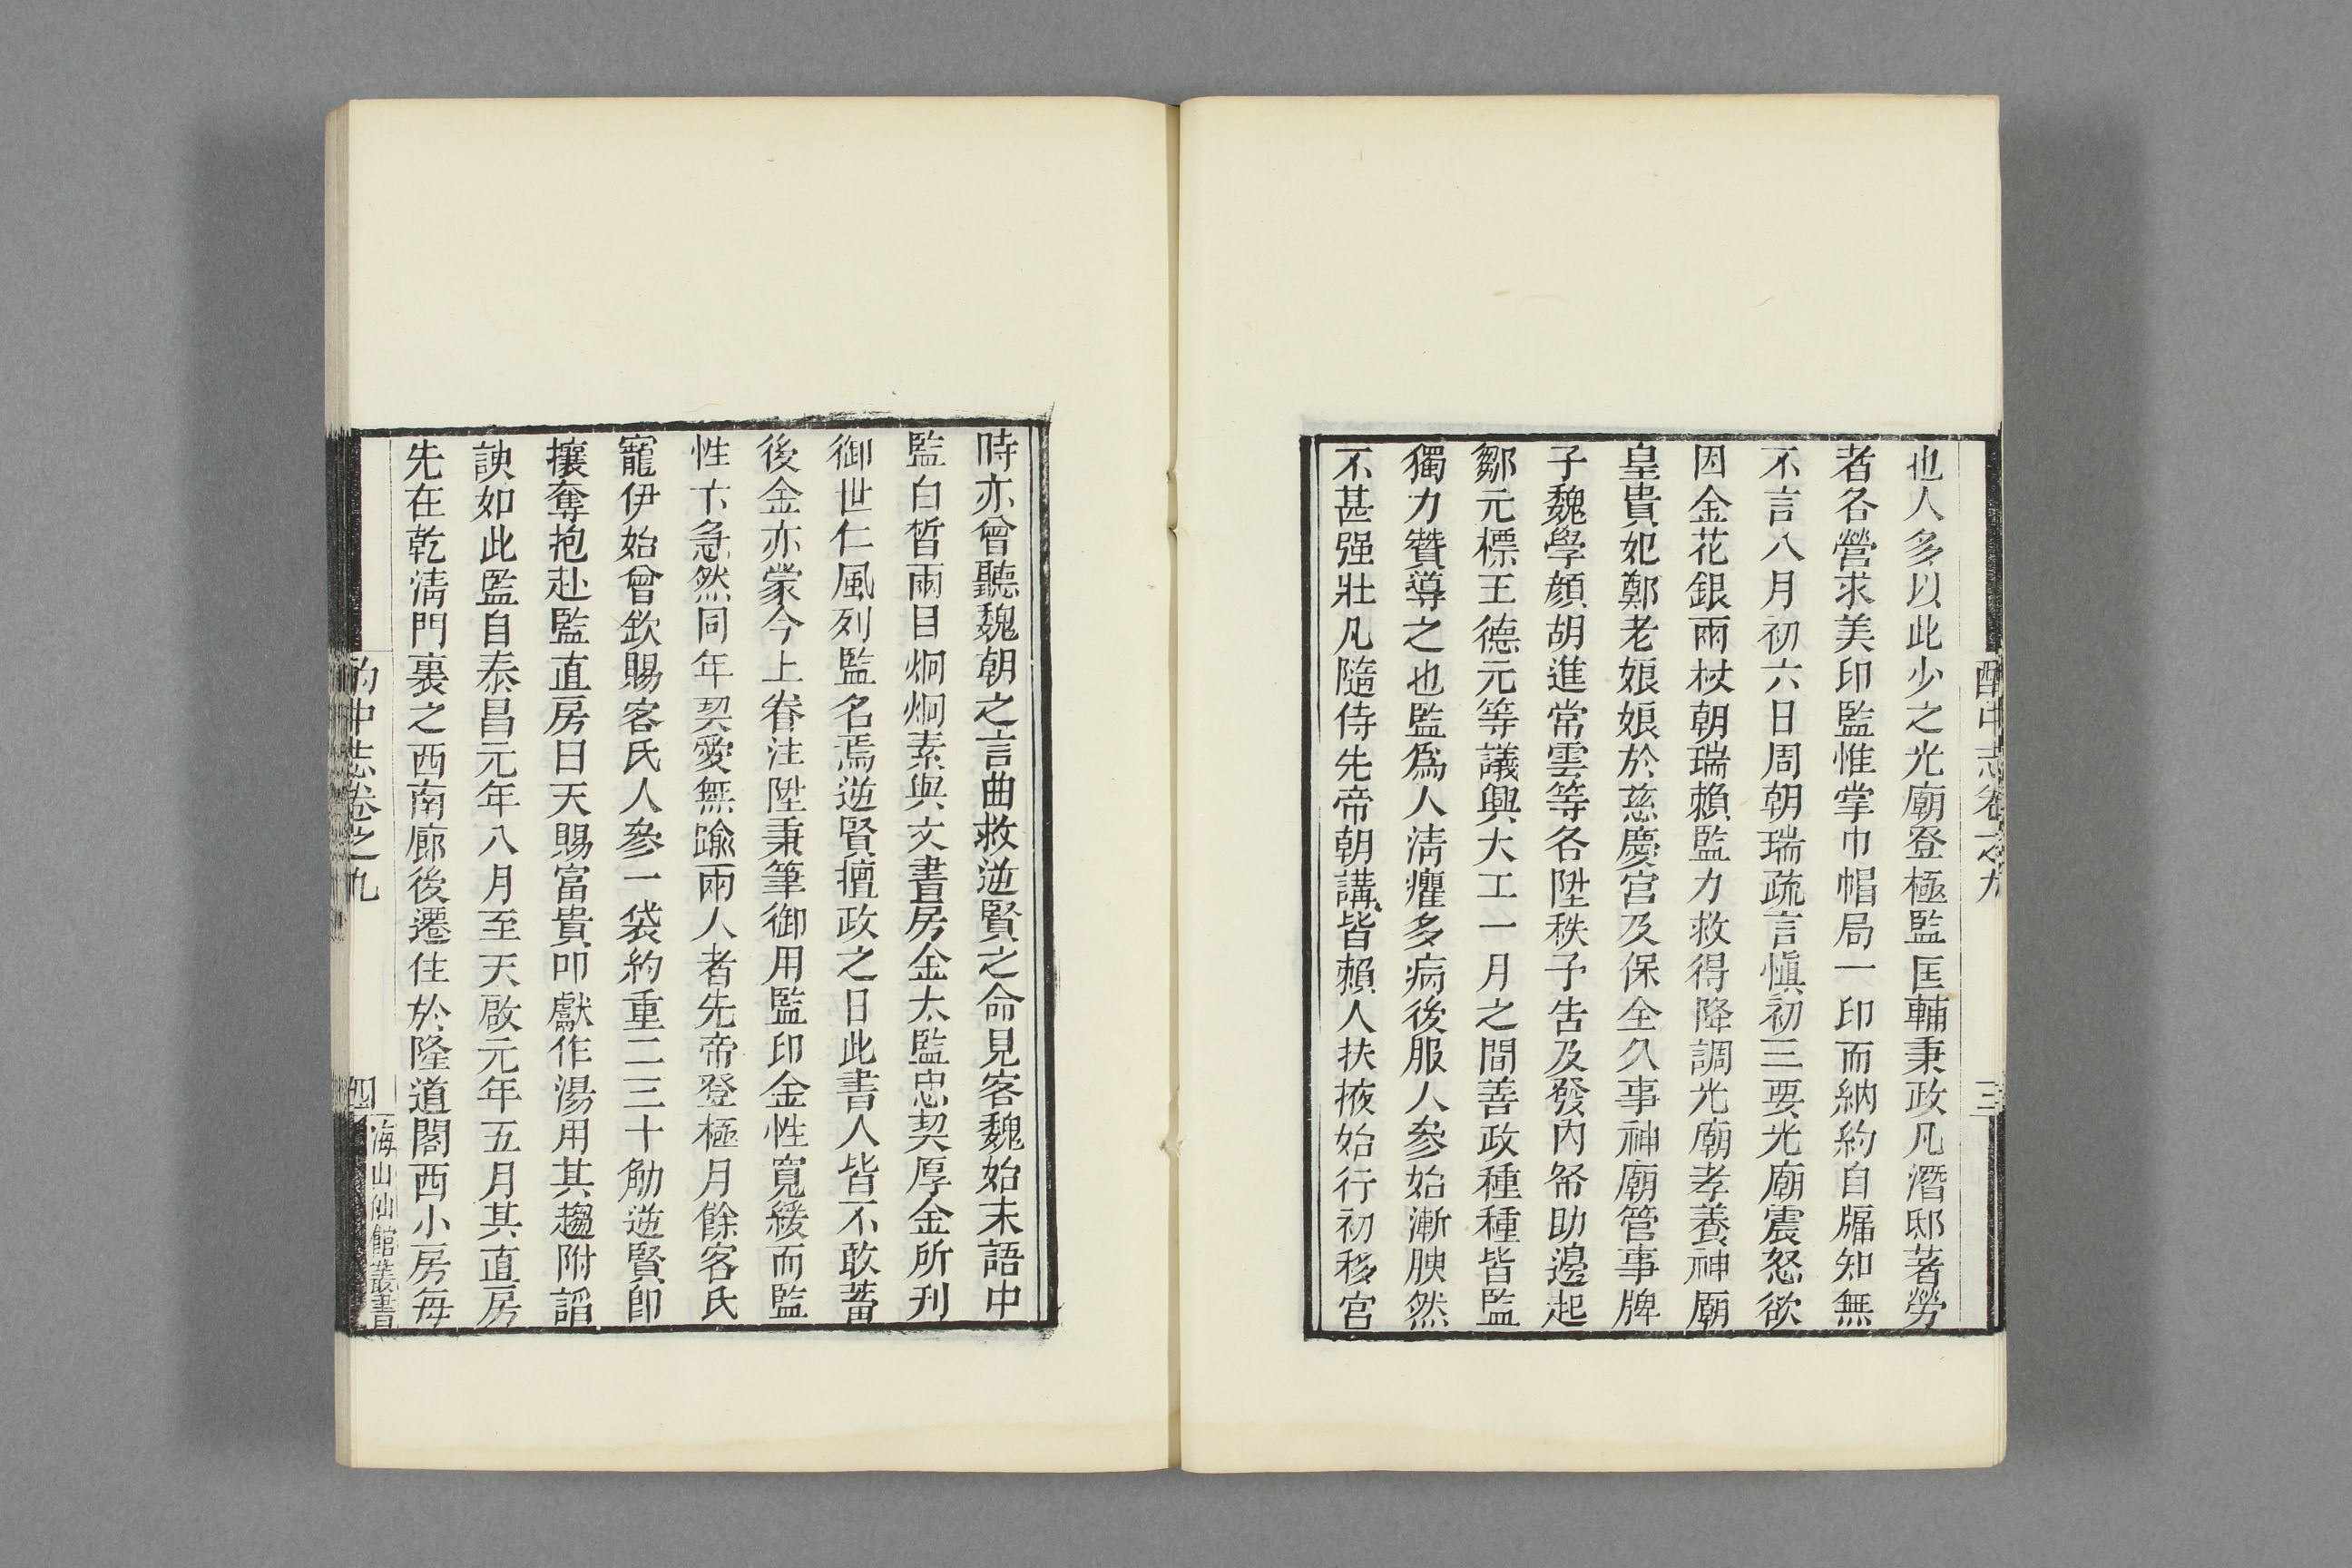 酌中志卷之九
三
也人多以此少之光廟登極監匡輔秉政凡潛邸著勞
者各營求美印監惟掌巾帽局一印而納約自牖知無
不言八月初六日周朝瑞疏言愼初三要光廟震怒欲
因金花銀兩杖朝瑞賴監力救得降調光廟孝養神廟
皇貴妃鄭老娘娘於慈慶宮及保全久事神廟管事牌
子魏學顏胡進常雲等各陞秩予吿及發內帑助邊起
鄒元標王德元等議興大工一月之間善政種種皆監
獨力贊導之也監爲人淸癯多病後服人參始漸腴然
不甚强壯凡隨侍先帝朝講皆賴人扶掖始行初移宮
時亦曾聽魏朝之言曲救逆賢之命見客魏始末語中
監白皙兩目炯炯素與文書房金太監忠契厚金所刊
御世仁風列監名焉逆賢擅政之日此書人皆不敢蓄
後金亦蒙今上眷注陞秉筆御用監印金性寬緩而監
性卞急然同年契愛無踰兩人者先帝登極月餘客氏
寵伊始曾欽賜客氏人參一袋約重二三十觔逆賢卽
攘奪抱赴監直房曰天賜富貴叩獻作湯用其趨附諂
諛如此監自泰昌元年八月至天啟元年五月其直房
先在乾淸門裏之西南廊後遷住於隆道閣西小房每
酌中志卷之九
四
海山仙館叢書